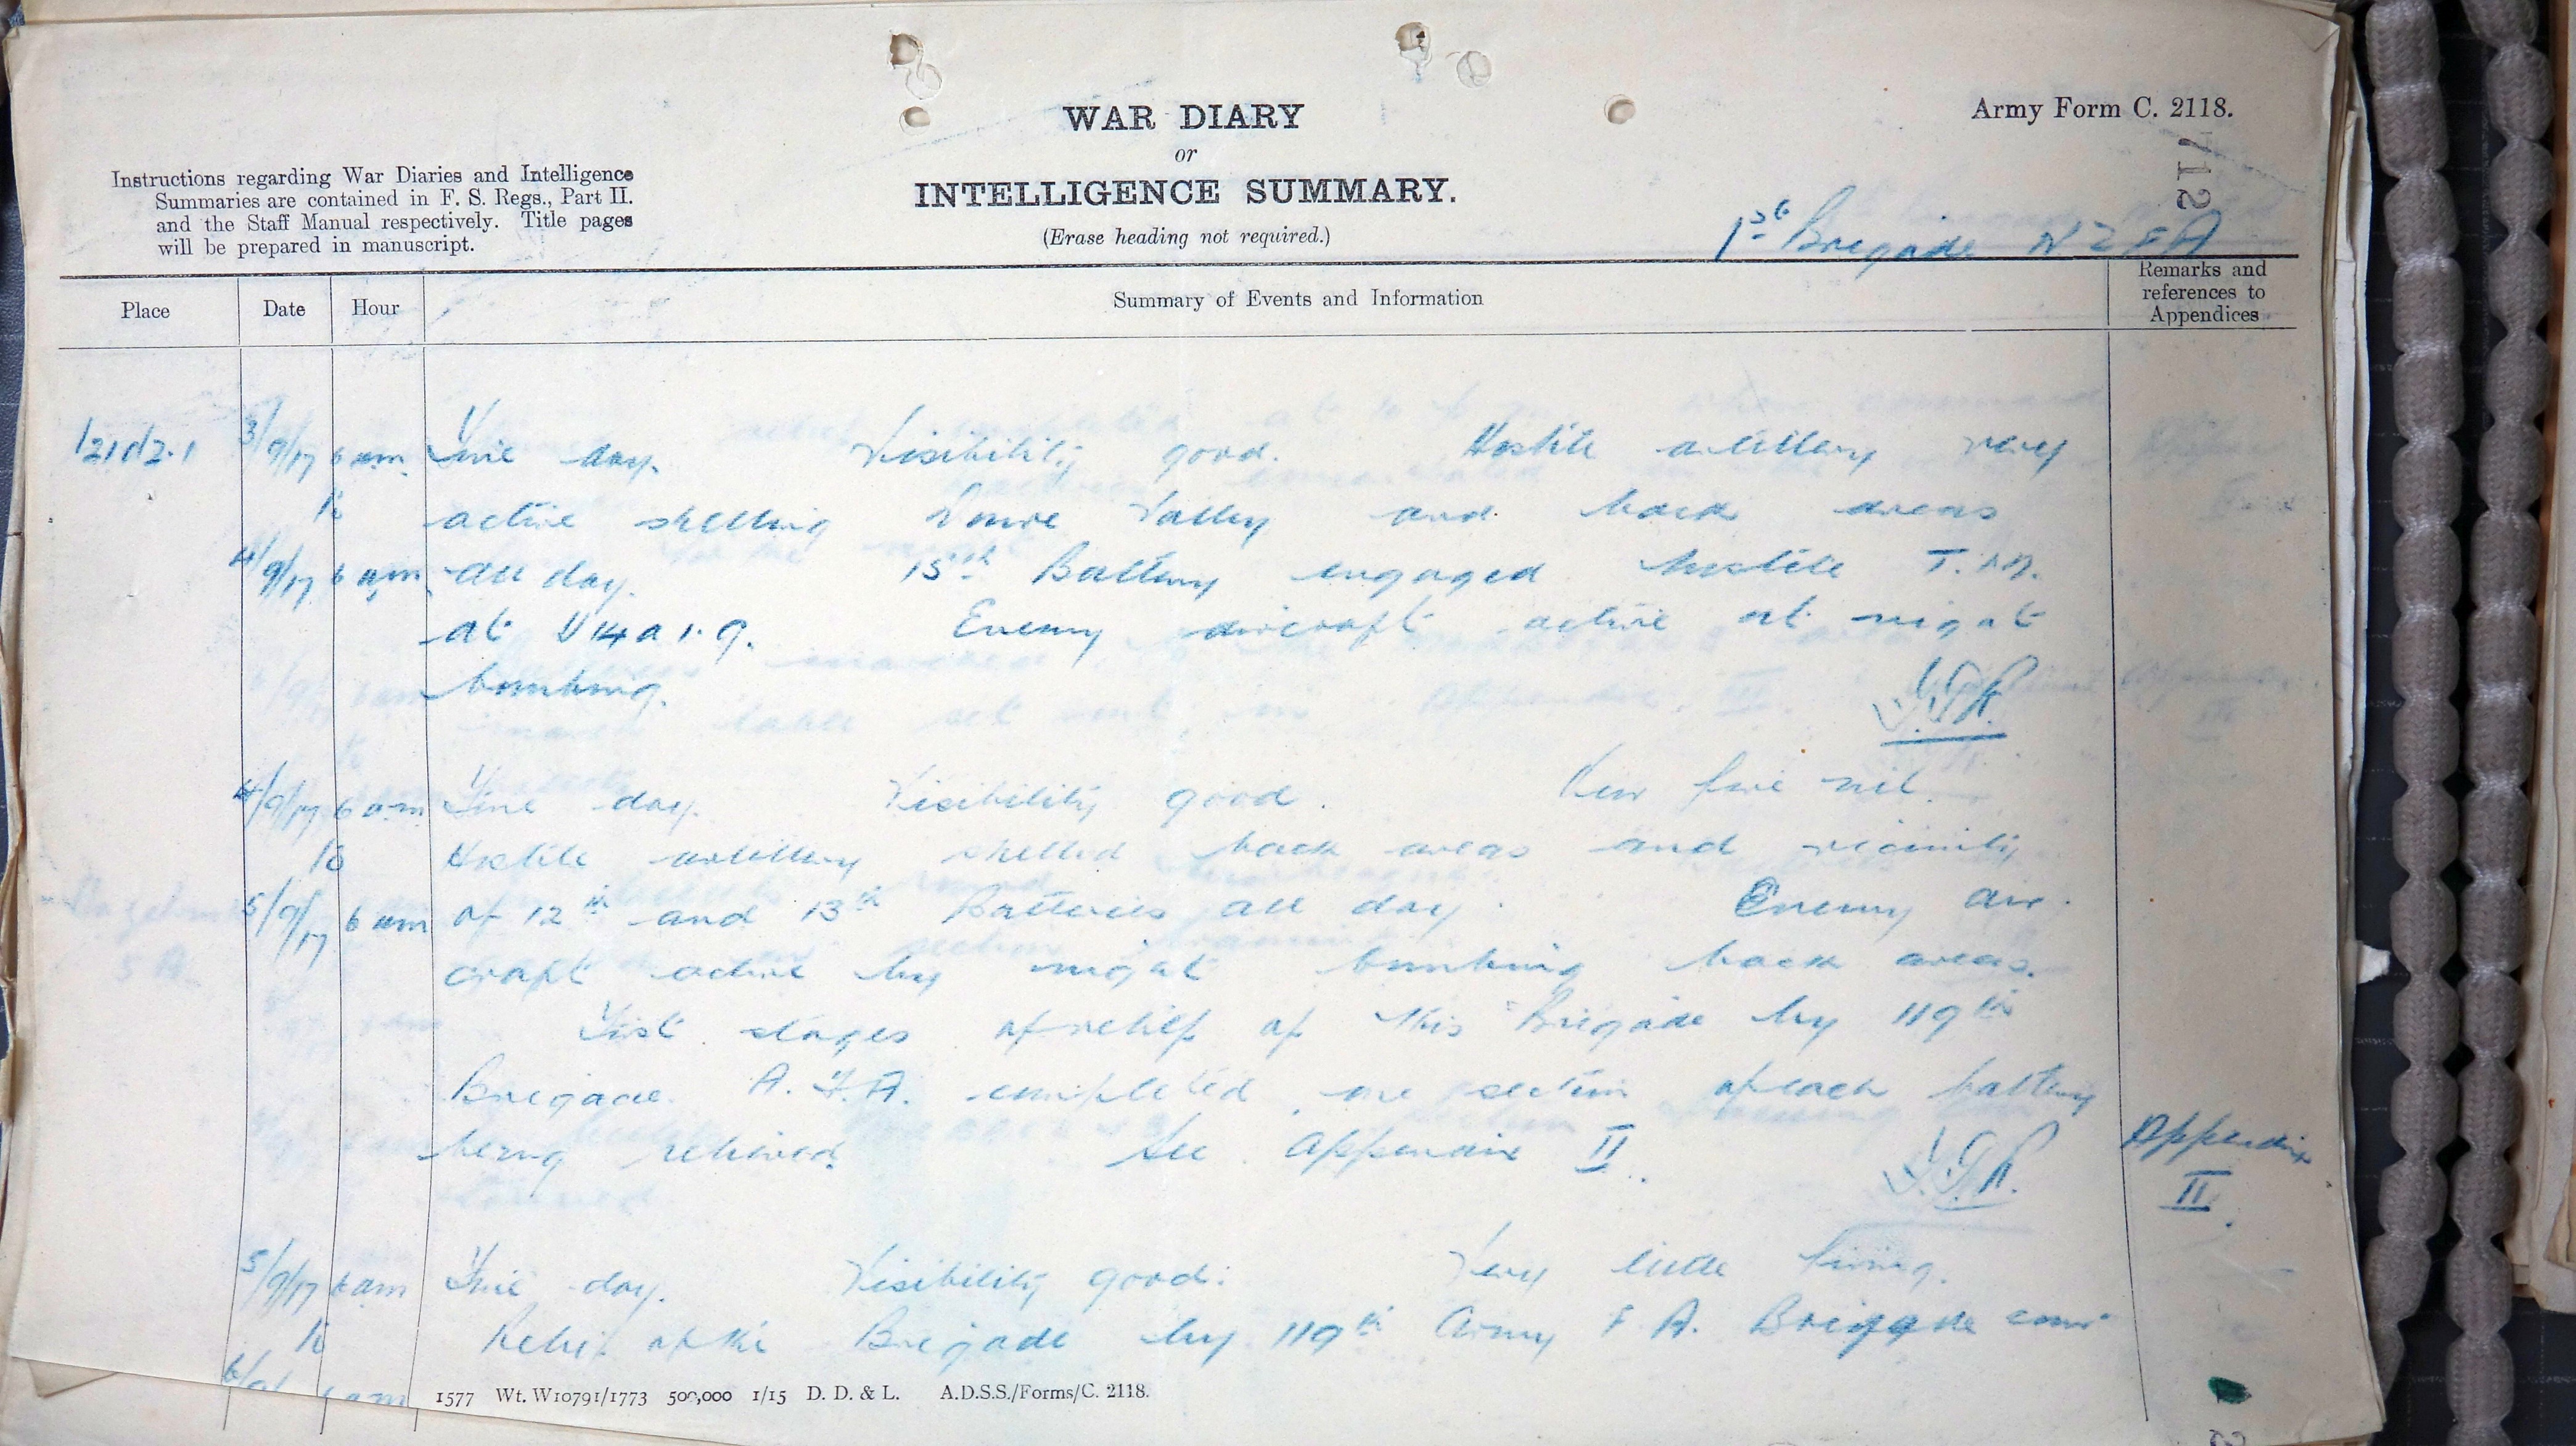 WAR DIARY
or
INTELLIGENCE SUMMARY.
(Erase heading not required.)
Army Form C. 2118.
712
Instructions regarding War Diaries and Intelligence
Summaries are contained in F. S. Regs., Part II.
and the Staff Manual respectively. Title pages
will be prepared in manuscript.
1st Brigade NZFA
Place Date Hour Summary of Events and Information Remarks and references to Appendices
3/9/17 6 am Fine day. Visibility good. Hostile artillery very
to active shelling Douve Valley and back areas
4/9/17 6 am all day. 15th Battery engaged hostile T.M.
at U14a1.9. Enemy aircraft active at night
bombing.
4/9/17 6 am Fine day. Visibility good. Our fire nil.
to Hostile artillery shelled back areas and vicinity
5/9/17 6 am of 12th and 13th Batteries all day. Enemy air
craft active by night bombing back areas.
First stages of relief of this Brigade by 119th
Brigade A.F.A. completed, one section of each battery
being relieved. See Appendix II. Appendix II.
5/9/17 6 am Fine day. Visibility good. Very little firing.
to Relief of the Brigade by 119th Army F.A. Brigade com-
6/9/ 6 am
1577 Wt. W10791/1773 500,000 1/15 D. D. & L. A.D.S.S./Forms/C. 2118.